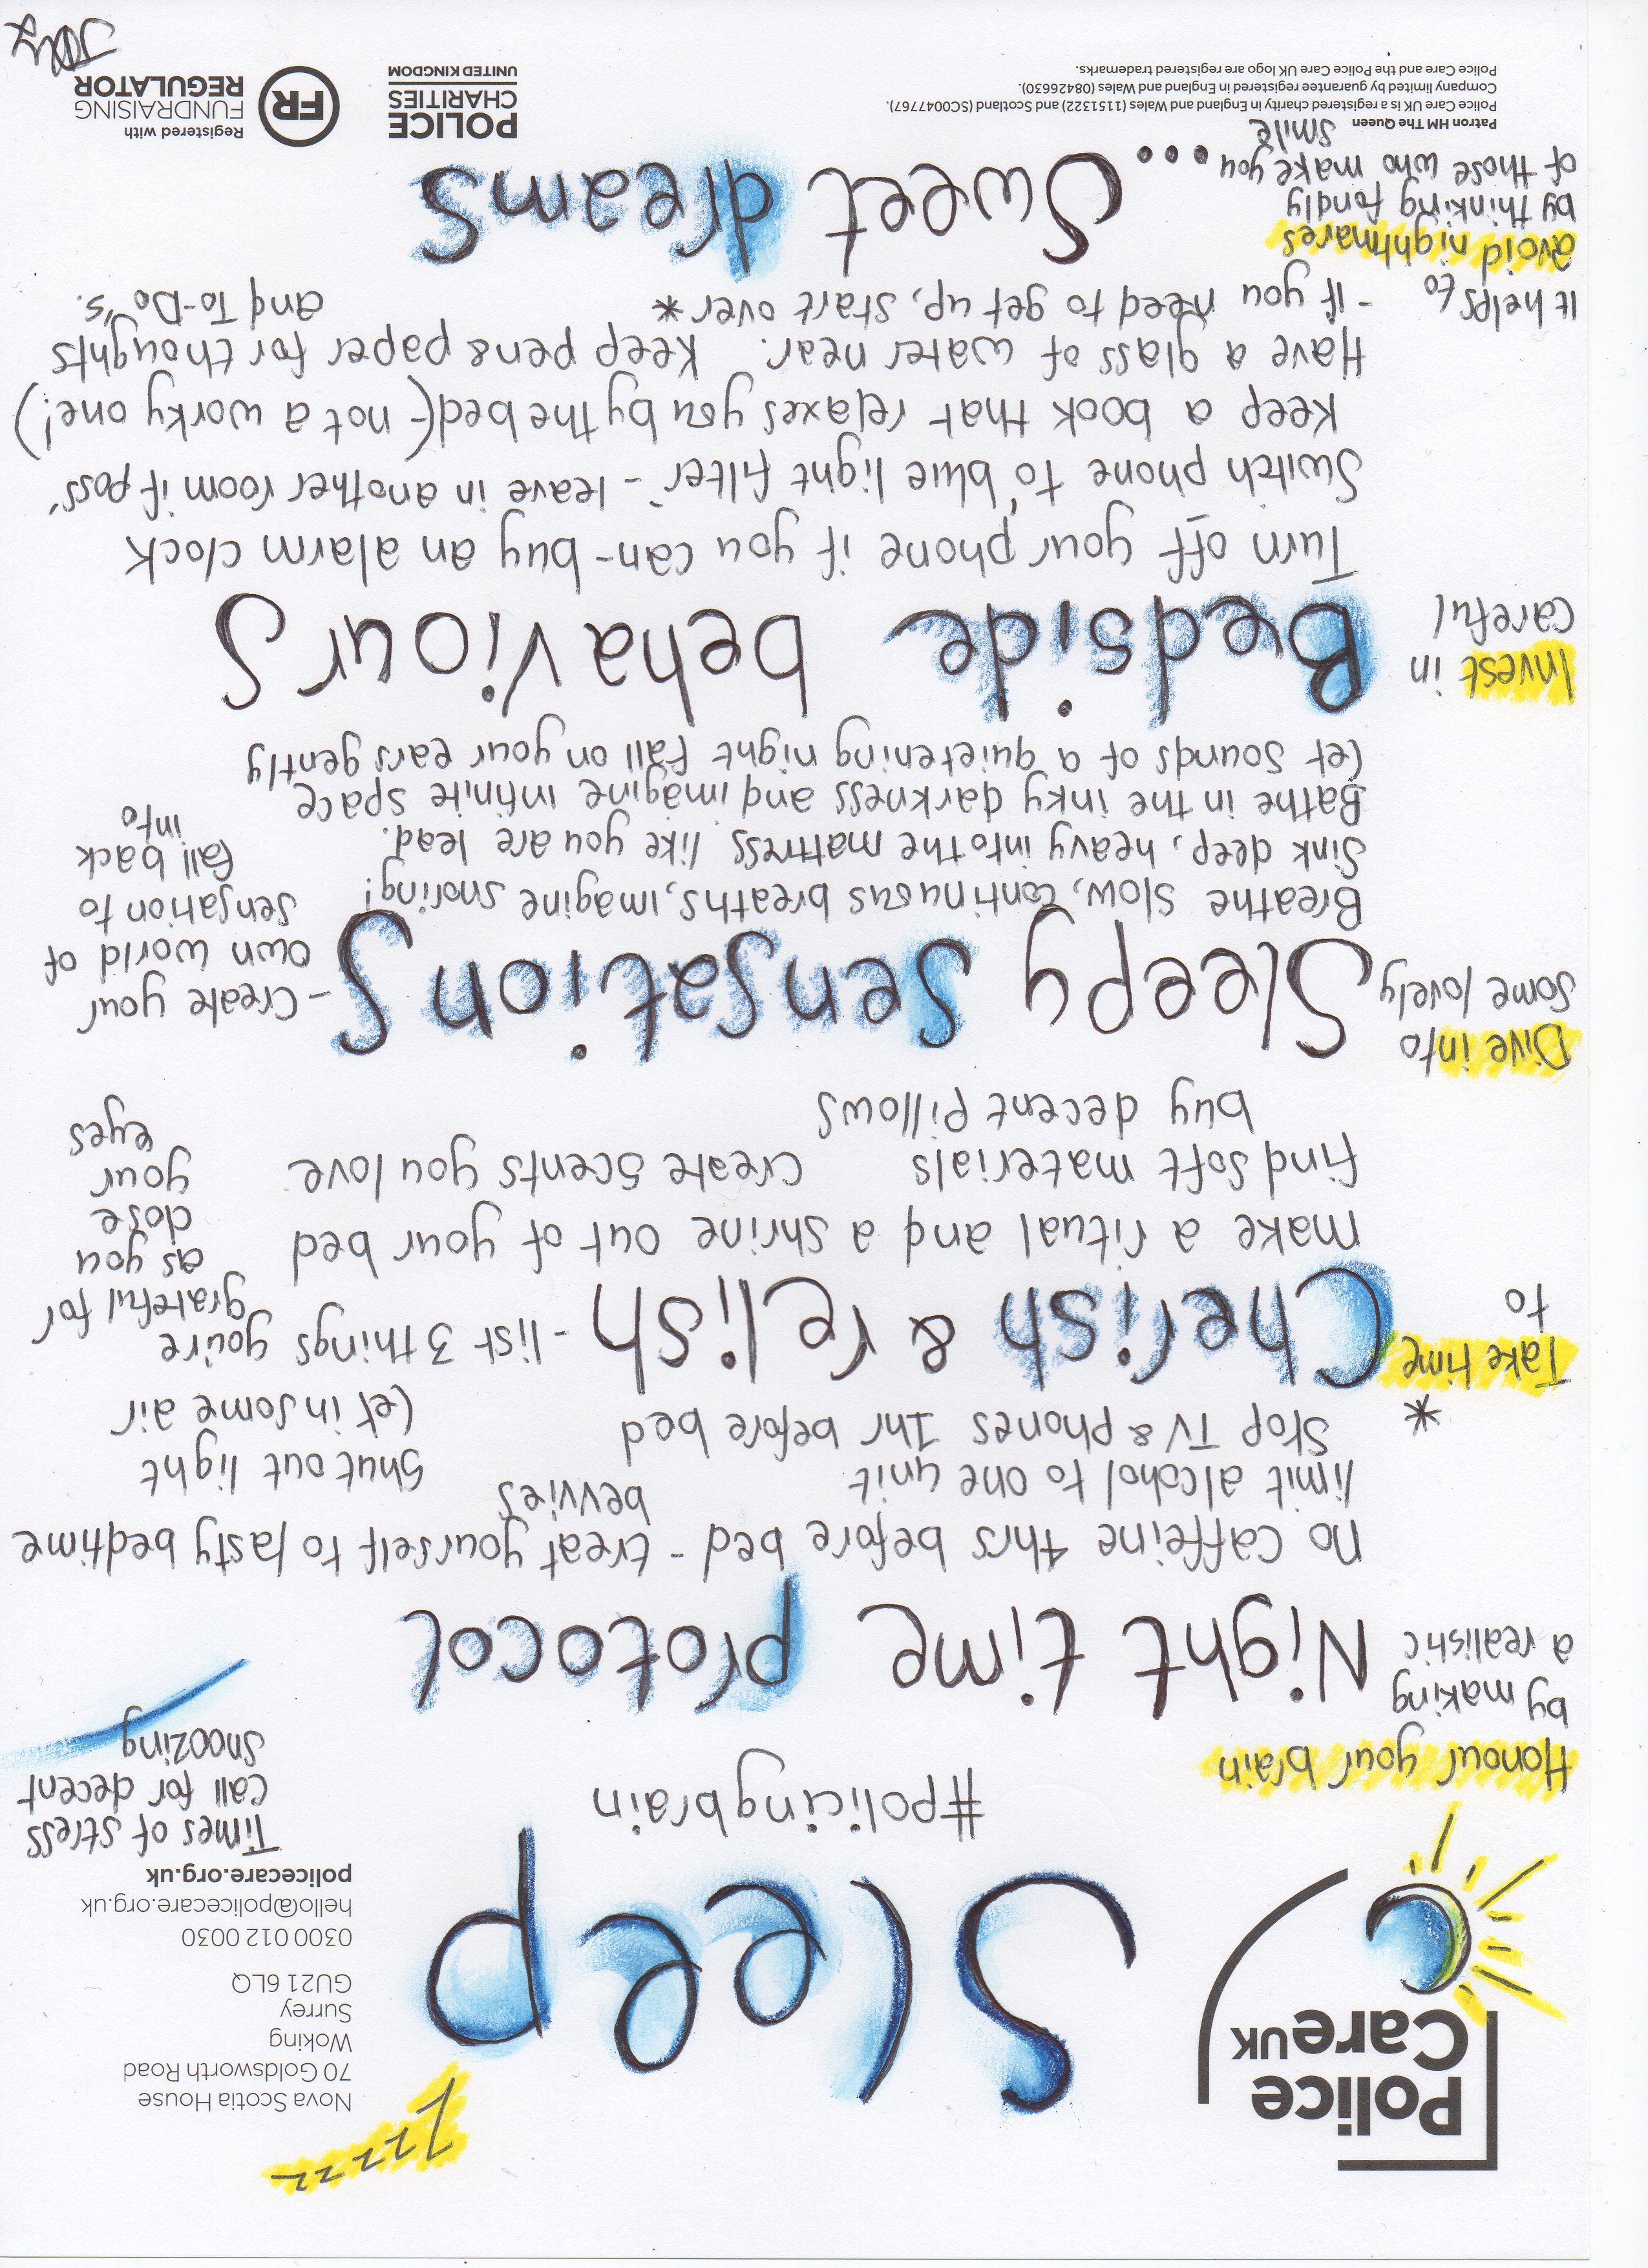 zzzzz
Police
Care UK
Nova Scotia House
70 Goldsworth Road
Woking
Surrey
GU21 6LQ
0300 012 0030
hello@policecare.org.uk
policecare.org.uk
Sleep
#policingbrain
Times of stress
call for decent
snoozing
Honour your brain
by making
a realistic
Night time protocol
no caffeine 4hrs before bed - treat yourself to tasty bedtime
bevvies
limit alcohol to one unit
Shut out light
Stop TV & phones 1hr before bed
let in some air
*
Take time
to
Cherish & relish
- list 3 things you're
grateful for
as you
close
your
eyes
make a ritual and a shrine out of your bed
find soft materials create scents you love
buy decent pillows
Dive into
some lovely
Sleepy Sensations
- create your
own world of
sensation to
fall back
into
Breathe slow, continuous breaths, imagine snoring!
Sink deep, heavy into the mattress like you are lead.
Bathe in the inky darkness and imagine infinite space
let sounds of a quietening night fall on your ears gently
Invest in
careful
Bedside behaviours
Turn off your phone if you can - buy an alarm clock
Switch phone to 'blue light filter' - leave in another room if poss'
Keep a book that relaxes you by the bed (- not a worky one!)
Have a glass of water near. Keep pen & paper for thoughts
and To-Do's.
- If you need to get up, start over *
It helps to
avoid nightmares
by thinking fondly
of those who make you
smile
... Sweet dreams
Patron HM The Queen
Police Care UK is a registered charity in England and Wales (1151322) and Scotland (SC0047767).
Company limited by guarantee registered in England and Wales (08426630).
Police Care and the Police Care UK logo are registered trademarks.
POLICE
CHARITIES
UNITED KINGDOM
FR
Registered with
FUNDRAISING
REGULATOR